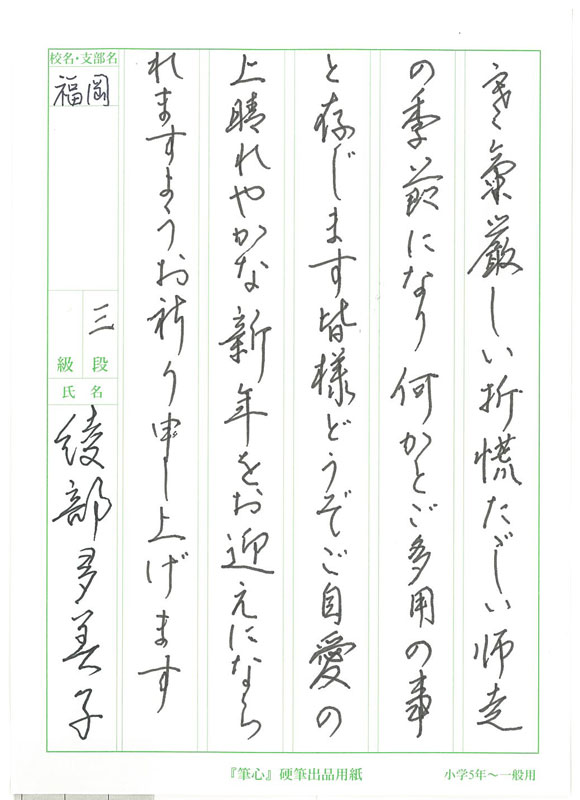 寒氣厳しい折慌ただしい師走
の季節になり何かとご多用の事
と存じます皆様どうぞご自愛の
上晴れやかな新年をお迎えになら
れますようお祈り申し上げます
校名・支部名
福岡
三
段
級
氏名
綾部多美子
『筆心』硬筆出品用紙
小学5年〜一般用